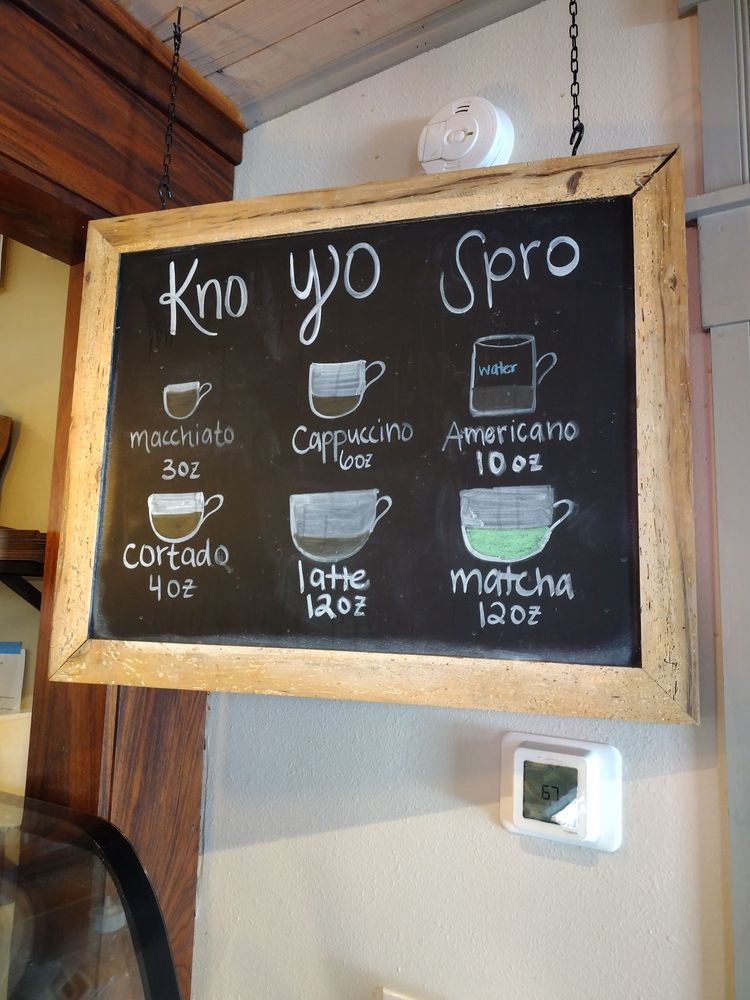 Kno Yo Spro
water
macchiato
3oz
Cappuccino
6oz
Americano
10oz
cortado
4oz
latte
12oz
matcha
12oz
67